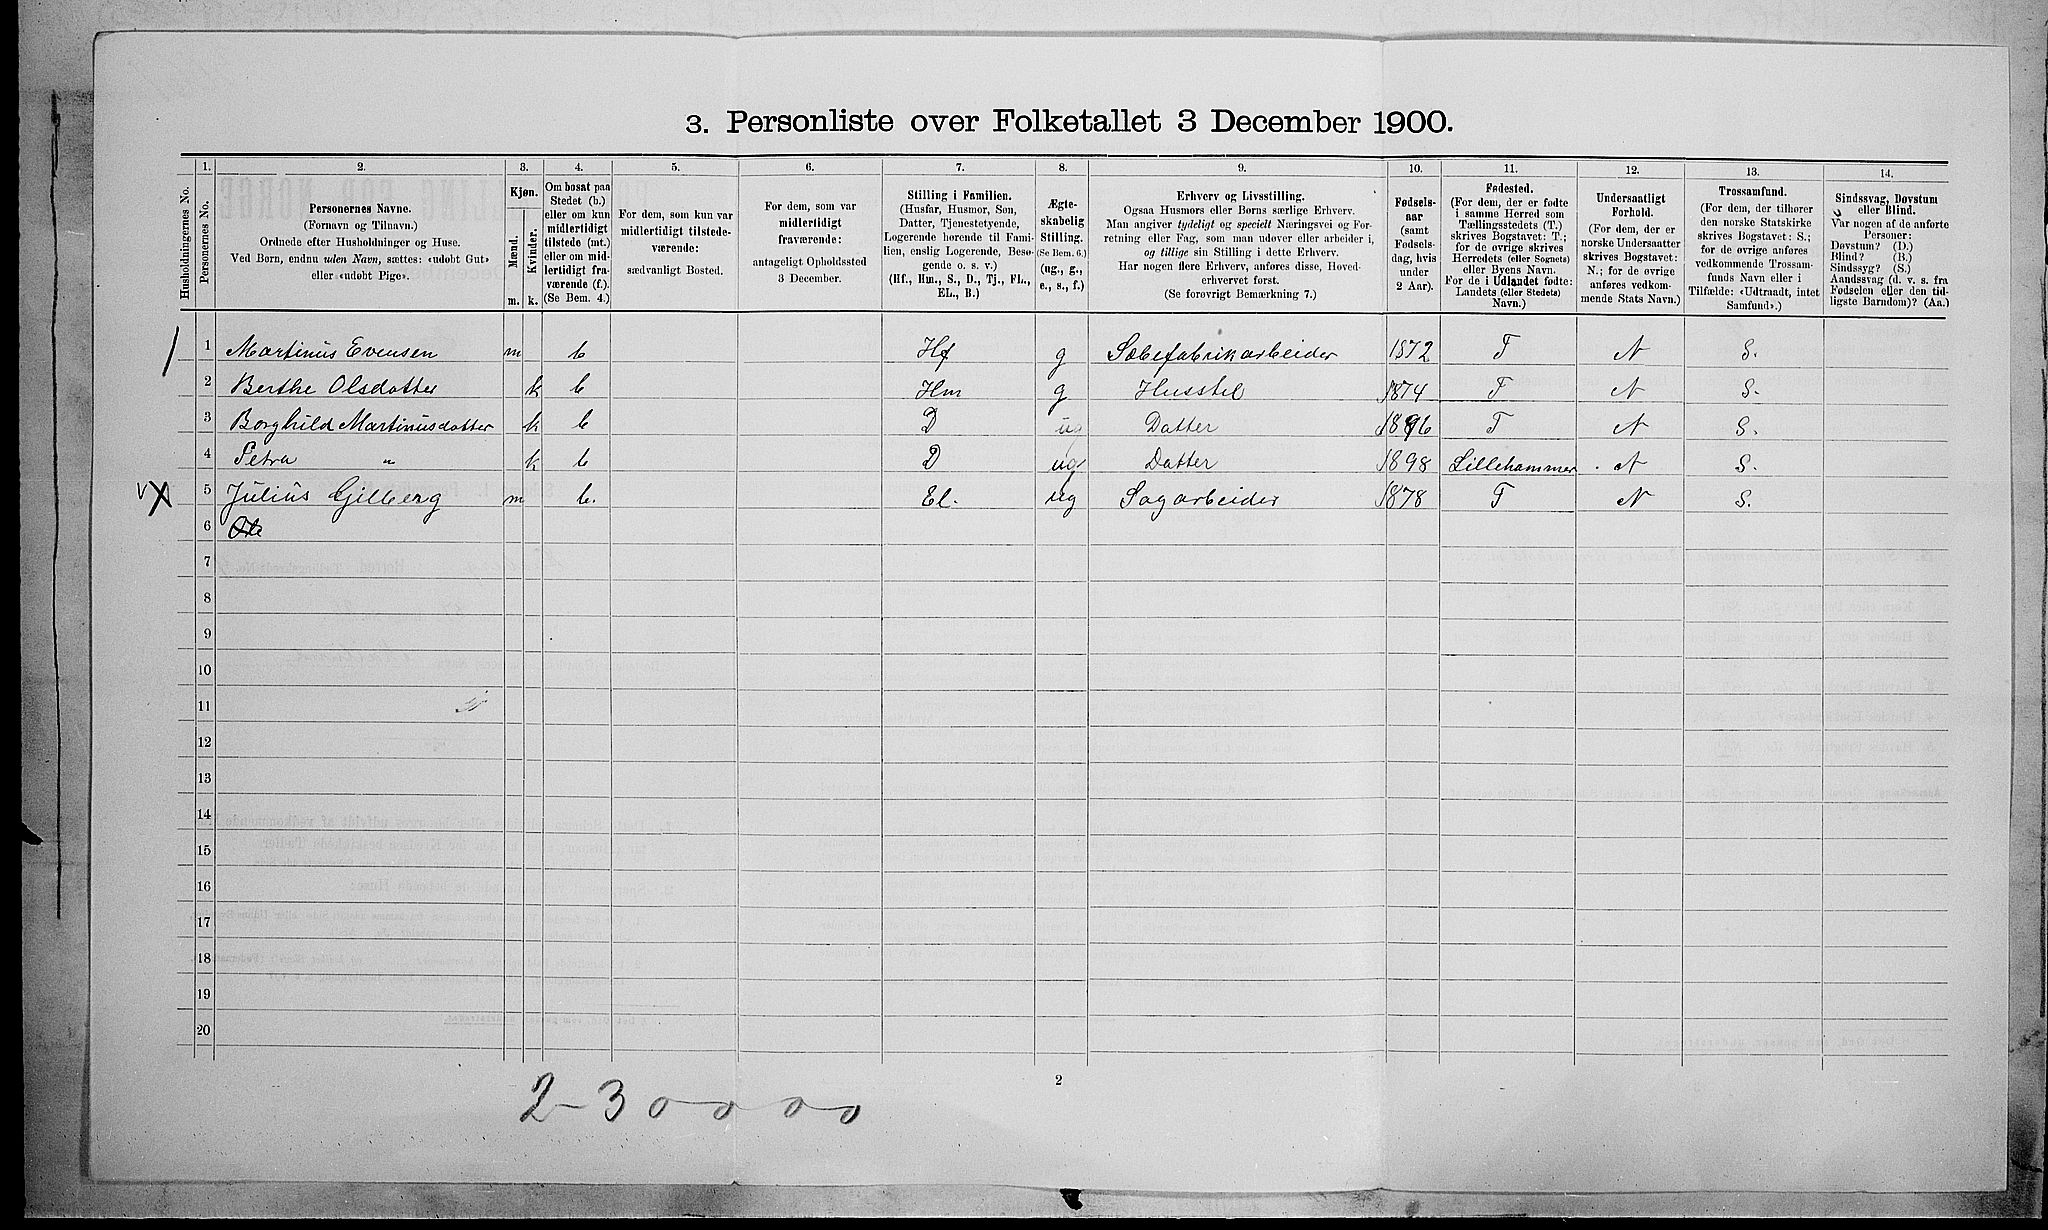 3. Personliste over Folketallet 3 December 1900.
Husholdningernes No.
1.
Personernes No.
2.
Personernes Navne.
(Fornavn og Tilnavn.)
Ordnede efter Husholdninger og Huse.
Ved Børn, endnu uden Navn, sættes: «udøbt Gut»
eller «udøbt Pige».
3.
Kjøn.
Mænd.
Kvinder.
m.
k.
4.
Om bosat paa
Stedet (b.)
eller om kun
midlertidigt
tilstede (mt.)
eller om mid-
lertidigt fra-
værende (f.).
(Se Bem. 4.)
5.
For dem, som kun var
midlertidigt tilstede-
værende:
sædvanligt Bosted.
6.
For dem, som var
midlertidigt
fraværende:
antageligt Opholdssted
3 December.
7.
Stilling i Familien.
(Husfar, Husmor, Søn,
Datter, Tjenestetyende,
Logerende hørende til Fami-
lien, enslig Logerende, Besø-
gende o. s. v.)
(Hf., Hm., S., D., Tj., FL.,
EL., B.)
8.
Ægte-
skabelig
Stilling.
(Se Bem. 6.)
(ug., g.,
e., s., f.)
9.
Erhverv og Livsstilling.
Ogsaa Husmors eller Børns særlige Erhverv.
Man angiver tydeligt og specielt Næringsvei og For-
retning eller Fag, som man udøver eller arbeider i,
og tillige sin Stilling i dette Erhverv.
Har nogen flere Erhverv, anføres disse, Hoved-
erhvervet først.
(Se forøvrigt Bemærkning 7.)
10.
Fødsels-
aar
(samt
Fødsels-
dag, hvis
under
2 Aar).
11.
Fødested.
(For dem, der er fødte
i samme Herred som
Tællingsstedets (T.)
skrives Bogstavet: T.;
for de øvrige skrives
Herredets (eller Sognets)
eller Byens Navn.
For de i Udlandet fødte:
Landets (eller Stedets)
Navn.)
12.
Undersaatligt
Forhold.
(For dem, der er
norske Undersaatter
skrives Bogstavet:
N.; for de øvrige
anføres vedkom-
mende Stats Navn.)
13.
Trossamfund.
(For dem, der tilhører
den norske Statskirke
skrives Bogstavet: S.;
for de øvrige anføres
vedkommende Trossam-
funds Navn eller i
Tilfælde: «Udtraadt, intet
Samfund».)
14.
Sindssvag, Døvstum
eller Blind.
Var nogen af de anførte
Personer:
Døvstum? (D.)
Blind? (B.)
Sindssyg? (S.)
Aandssvag (d. v. s. fra
Fødselen eller den tid-
ligste Barndom)? (Aa.)
1 Martinus Evensen m b Hf g Sæbefabrikarbeider 1872 T N S.
2 Berthe Olsdatter k b Hm g Husstel 1874 T N S.
3 Borghild Martinusdatter k b D ug Datter 1896 T N S.
4 Petra " k b D ug Datter 1898 Lillehammer N S.
5 Julius Gjilberg m b. El. ug Sagarbeider 1878 T N S.
6 Ole
7
8
9
10
11
12
13
14
15
16
17
18
19
20
2
2-30000